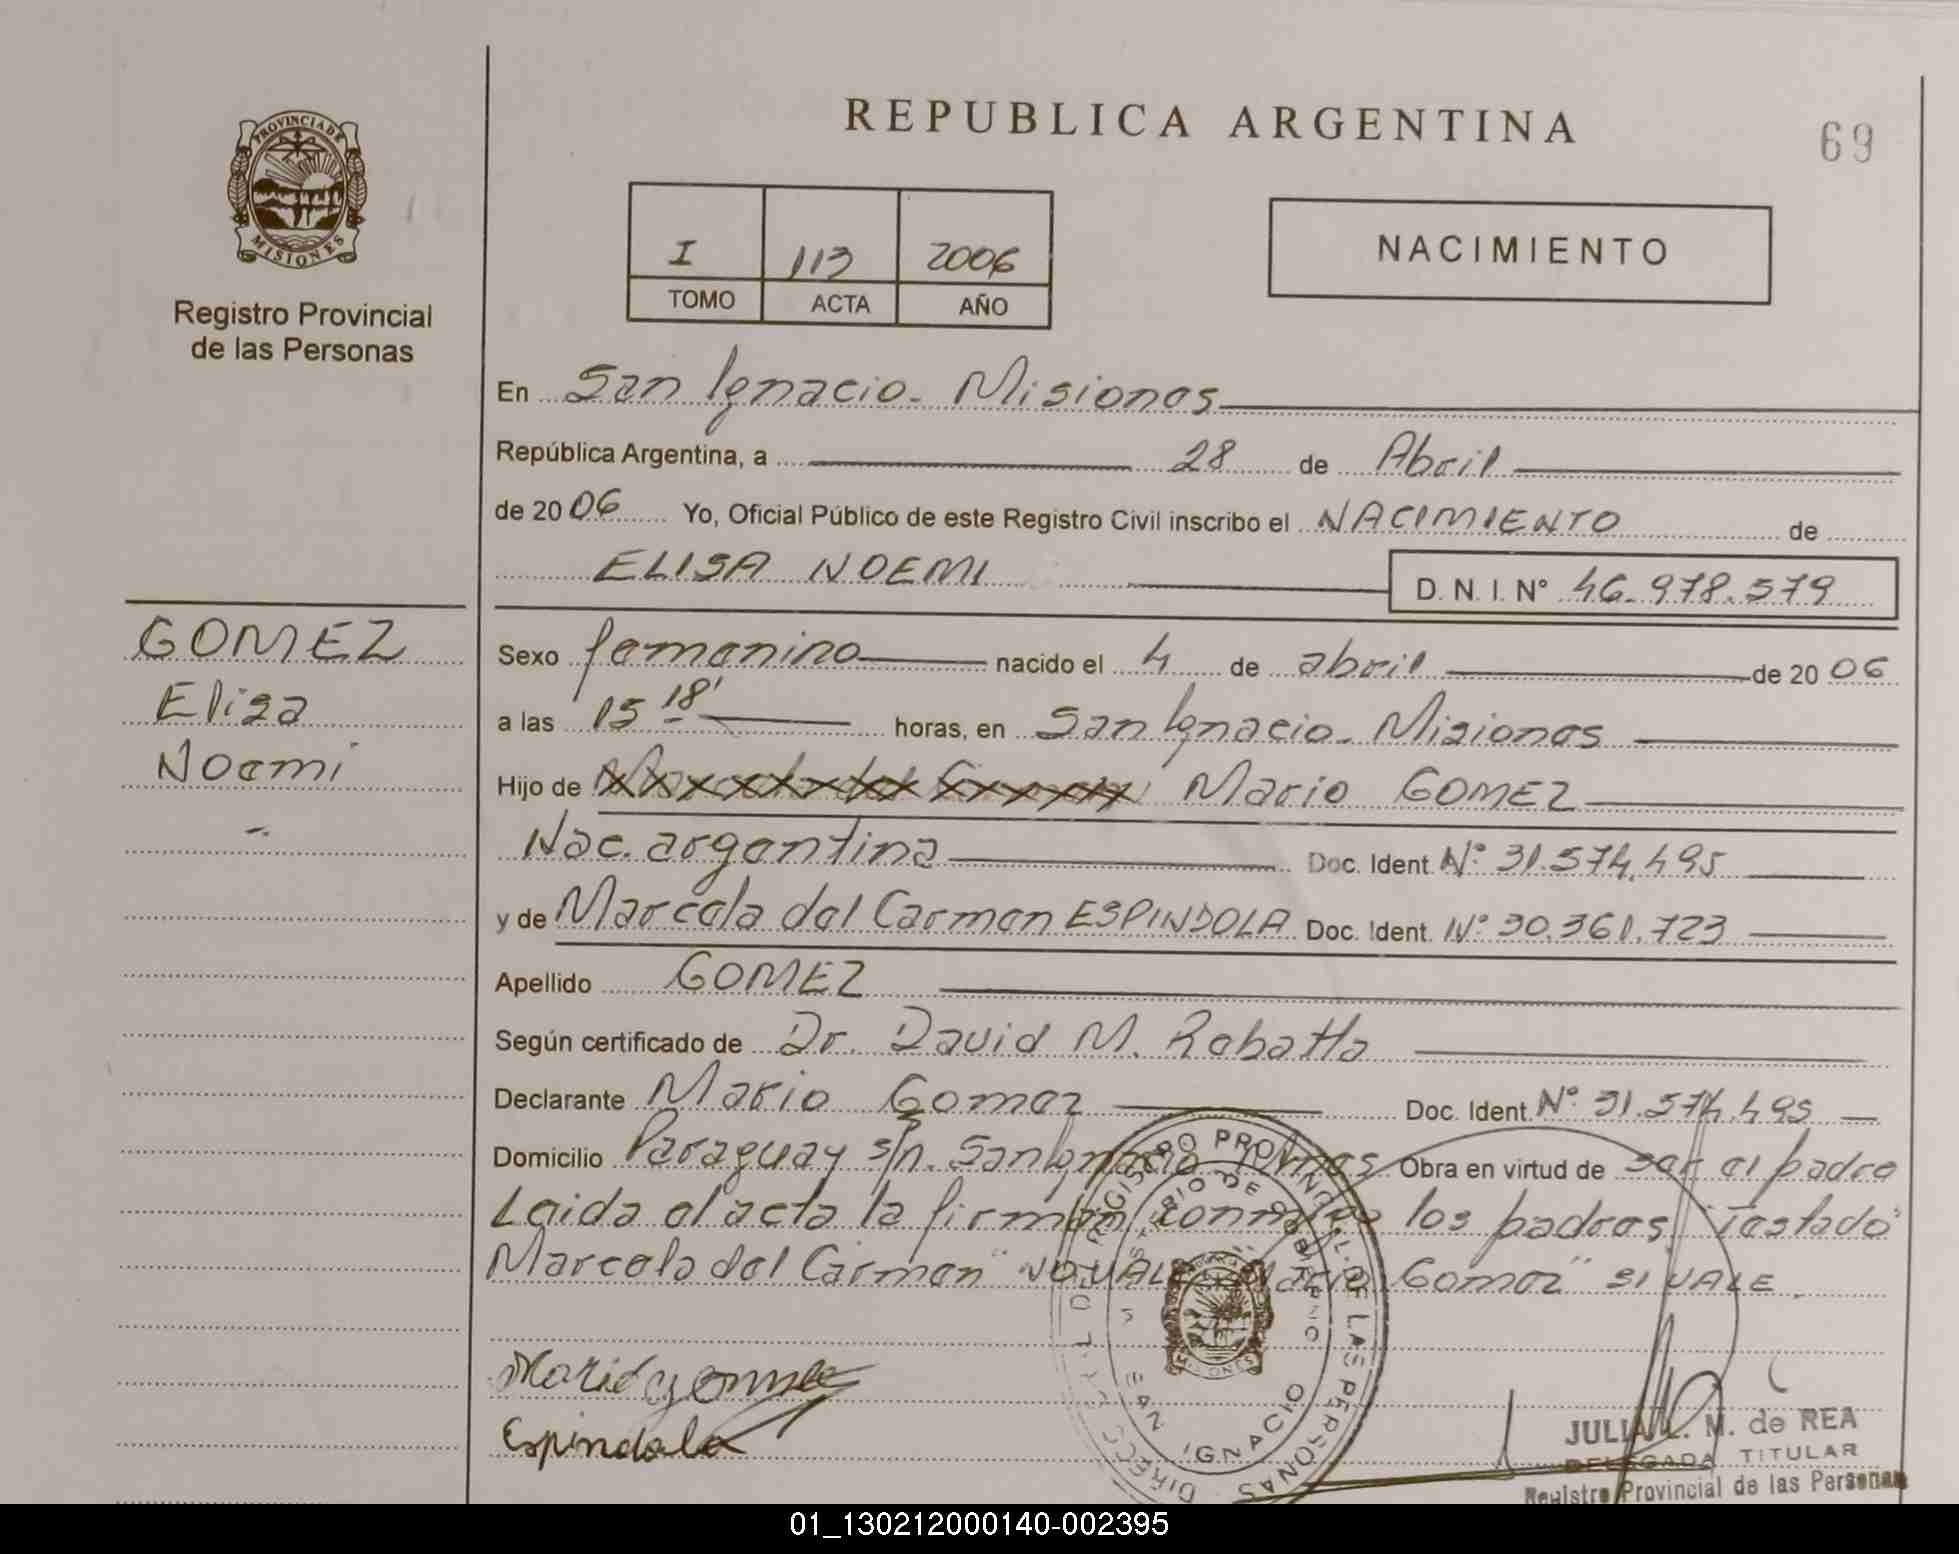 REPUBLICA ARGENTINA
69
PROVINCIA DE
MISIONES
Registro Provincial
de las Personas
I 113 2006
TOMO ACTA AÑO
NACIMIENTO
En San Ignacio - Misiones
República Argentina, a 28 de Abril
de 2006 Yo, Oficial Público de este Registro Civil inscribo el NACIMIENTO de
ELISA NOEMI D. N. I. Nº 46.978.579
GOMEZ
Elisa
Noemi
Sexo femenino nacido el 4 de abril de 2006
a las 15 18' horas, en San Ignacio - Misiones
Hijo de Mario GOMEZ
Nac. argentina Doc. Ident. Nº 31.574.495
y de Marcela del Carmen ESPINDOLA Doc. Ident. Nº 30.361.723
Apellido GOMEZ
Según certificado de Dr. David M. Robatta
Declarante Mario Gomez Doc. Ident. Nº 31.574.495
Domicilio Paraguay s/n. San Ignacio Mnes Obra en virtud de ser el padre
Leida el acta la firman conmigo los padres, "Testado"
Marcela del Carmen" NO VALE "Mario Gomez" SI VALE.
Mario Gomez
Espindola
REGISTRO PROVINCIAL DE LAS PERSONAS
MINISTERIO DE GOBIERNO
MISIONES
SAN IGNACIO
JULIA L. M. de REA
DELEGADA TITULAR
Registro Provincial de las Personas
01_130212000140-002395